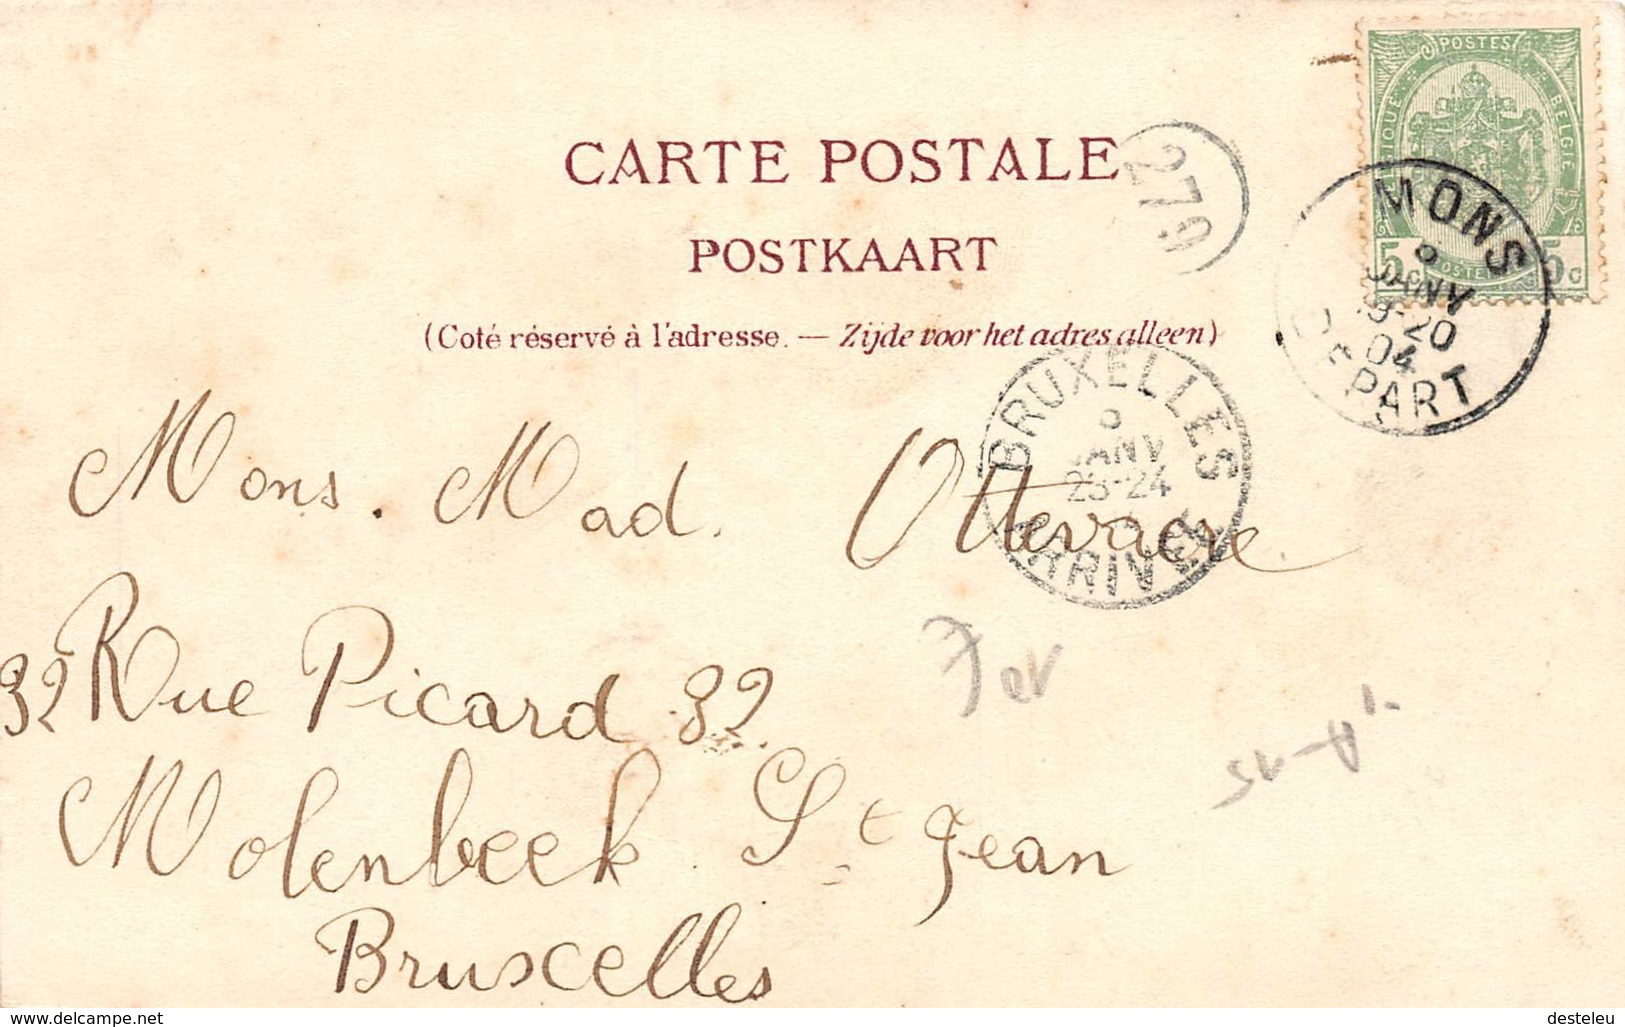 POSTES
BELGIQUE BELGIE
CARTE POSTALE
279
MONS
8
JANV
19-20
04
DEPART
5c 5c
POSTKAART
(Coté réservé à l'adresse. — Zijde voor het adres alleen)
BRUXELLES
8
JANV
23-24
ARRIVEE
Mons. Mad. Ottevaere.
32 Rue Picard 32.
Molenbeek St Jean
Bruxelles
www.delcampe.net
desteleu